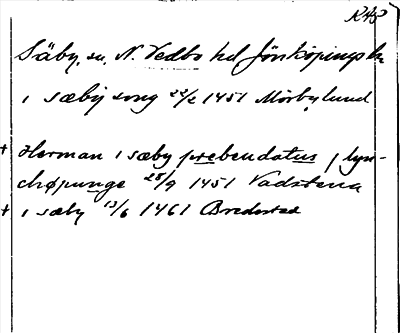 K45
Säby, sn, N. Vedbo hd Jönköpings län
i sæby song 22/2 1451 Mörbylund
+ Herman i sæby prebendatus i lyn-
chøpunge 28/9 1451 Vadstena
+ i sæby 13/6 1461 Bredestad